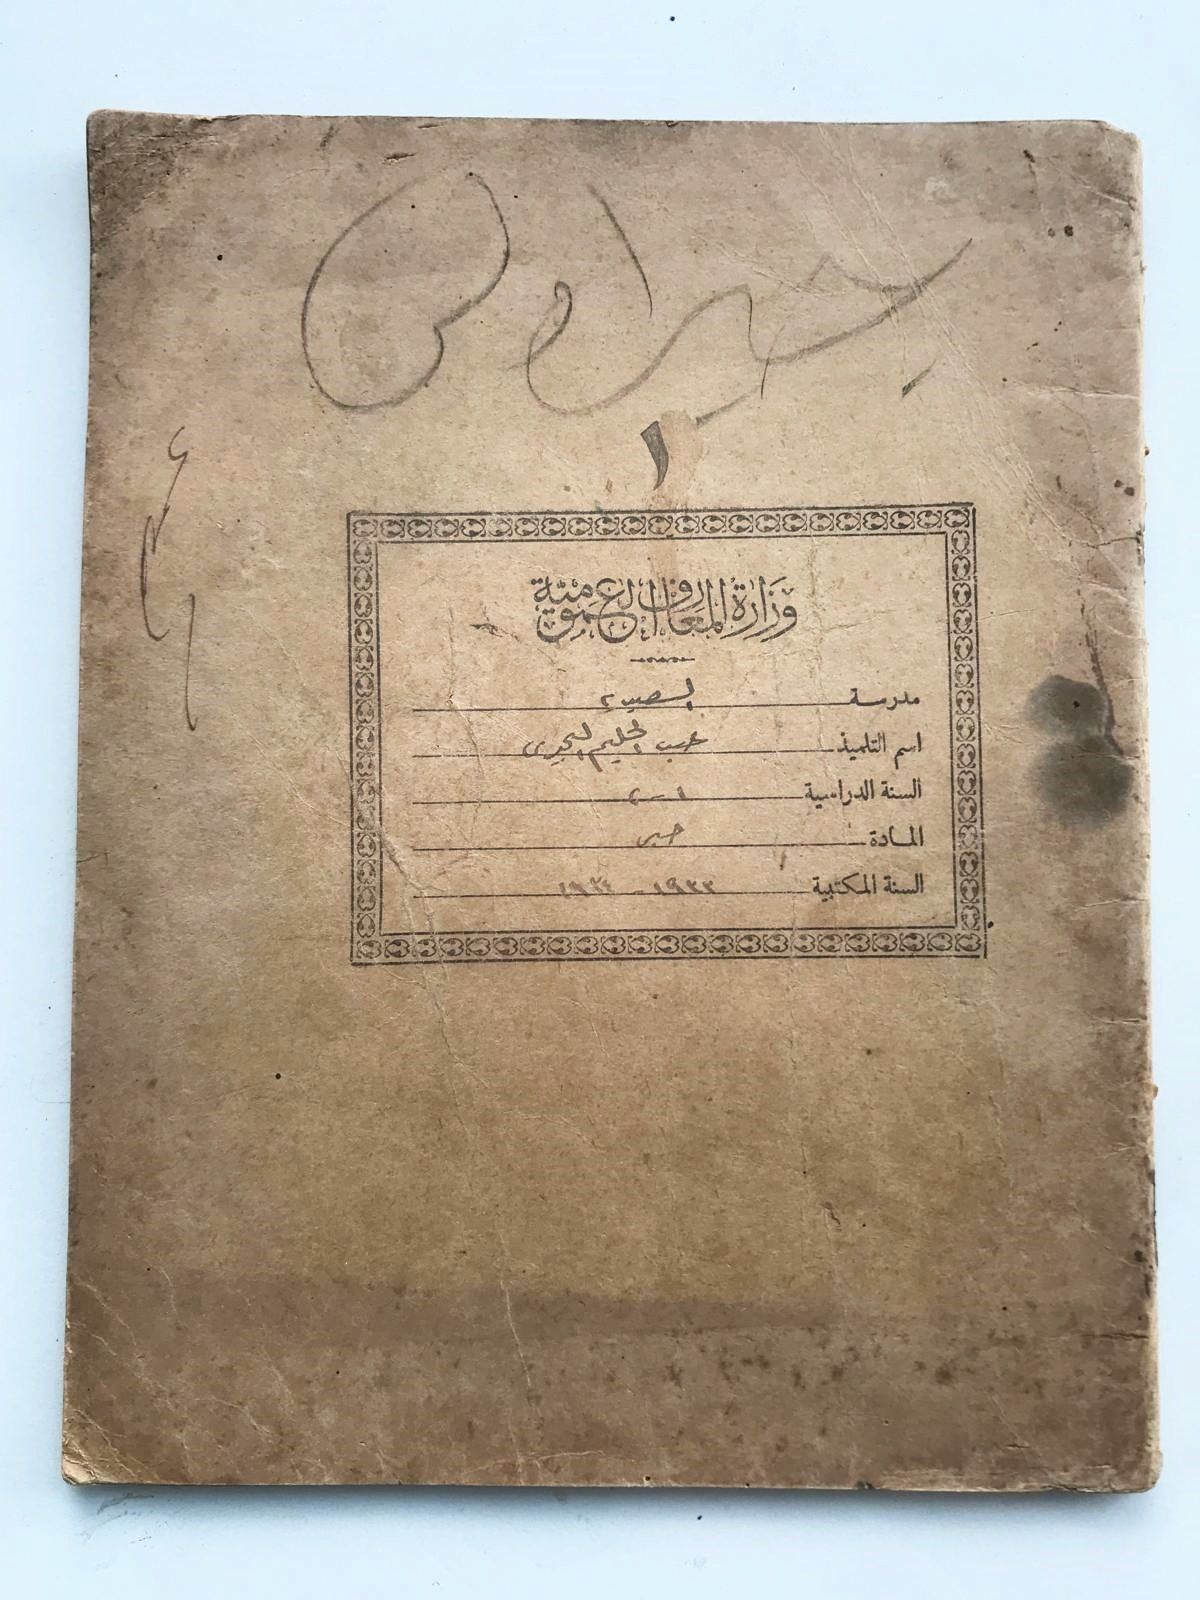 ١
وزارة المعارف العمومية
مدرسة
اسم التلميذ عبد الحليم البحيرى
السنة الدراسية ١ - ٢
المادة جبر
السنة المكتبية ١٩٣٣ - ١٩٣٤